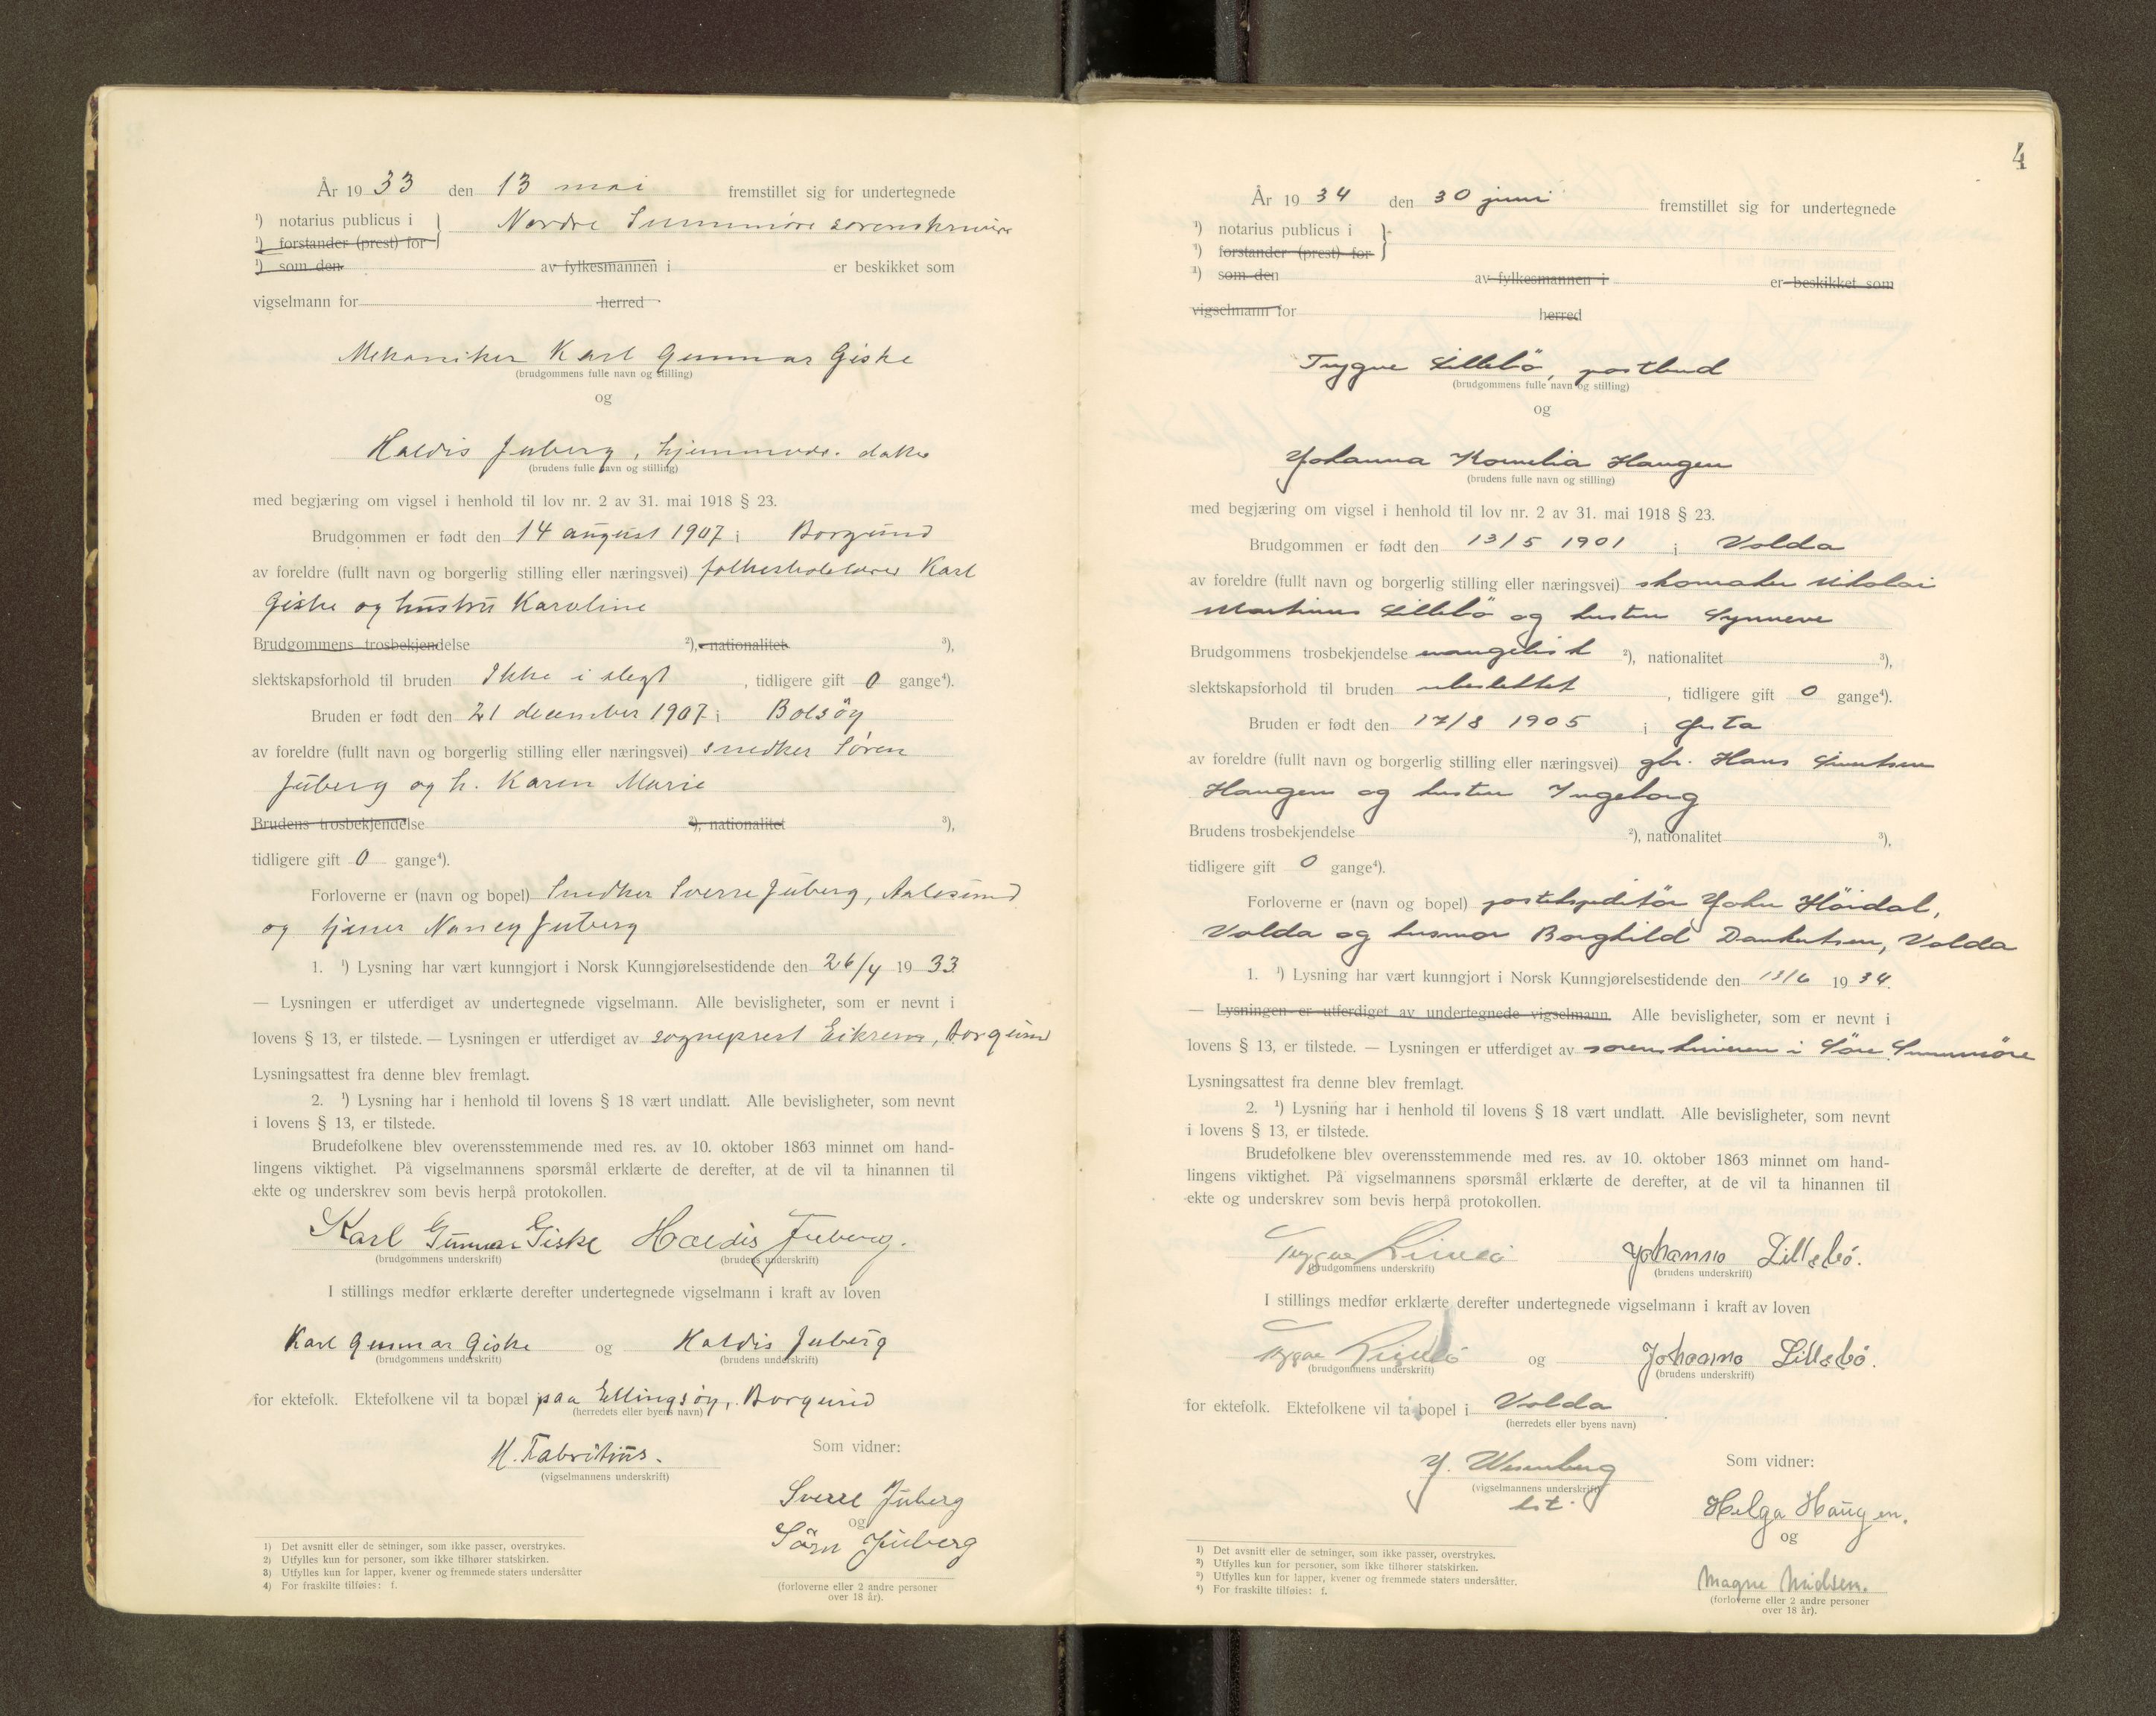 År 1933 den 13 mai fremstillet sig for undertegnede
¹) notarius publicus i } Nordre Sunnmöre sorenskriveri
¹) forstander (prest) for
¹) som den av fylkesmannen i er beskikket som
vigselmann for herred
Mekaniker Karl Gunnar Giske
(brudgommens fulle navn og stilling)
og
Haldis Juberg, hjemmevær. datter
(brudens fulle navn og stilling)
med begjæring om vigsel i henhold til lov nr. 2 av 31. mai 1918 § 23.
Brudgommen er født den 14 august 1907 i Borgund
av foreldre (fullt navn og borgerlig stilling eller næringsvei) folkeskolelærer Karl
Giske og hustru Karoline
Brudgommens trosbekjendelse ²), nationalitet ³),
slektskapsforhold til bruden Ikke i slegt, tidligere gift 0 gange⁴).
Bruden er født den 21 december 1907 i Bolsöy
av foreldre (fullt navn og borgerlig stilling eller næringsvei) snedker Sören
Juberg og h. Karen Marie
Brudens trosbekjendelse ²), nationalitet ³),
tidligere gift 0 gange⁴).
Forloverne er (navn og bopel) Snedker Sverre Juberg, Aalesund
og Nancy Juberg
1. ¹) Lysning har vært kunngjort i Norsk Kunngjørelsestidende den 26/4 1933
— Lysningen er utferdiget av undertegnede vigselmann. Alle bevisligheter, som er nevnt i
lovens § 13, er tilstede. — Lysningen er utferdiget av sogneprest Eikrem, Borgund
Lysningsattest fra denne blev fremlagt.
2. ¹) Lysning har i henhold til lovens § 18 vært undlatt. Alle bevisligheter, som nevnt
i lovens § 13, er tilstede.
Brudefolkene blev overensstemmende med res. av 10. oktober 1863 minnet om hand-
lingens viktighet. På vigselmannens spørsmål erklærte de derefter, at de vil ta hinannen til
ekte og underskrev som bevis herpå protokollen.
Karl Gunnar Giske Haldis Juberg.
(brudgommens underskrift) (brudens underskrift)
I stillings medfør erklærte derefter undertegnede vigselmann i kraft av loven
Karl Gunnar Giske og Haldis Juberg
(brudgommens underskrift) (brudens underskrift)
for ektefolk. Ektefolkene vil ta bopæl paa Ellingsöy, Borgund
(herredets eller byens navn)
H. Fabritius.
(vigselmannens underskrift)
Som vidner:
Sverre Juberg
og
Sörn Juberg
(forloverne eller 2 andre personer
over 18 år).
1) Det avsnitt eller de setninger, som ikke passer, overstrykes.
2) Utfylles kun for personer, som ikke tilhører statskirken.
3) Utfylles kun for lapper, kvener og fremmede staters undersåtter
4) For fraskilte tilføies: f.
4
År 1934 den 30 juni fremstillet sig for undertegnede
¹) notarius publicus i }
¹) forstander (prest) for
¹) som den av fylkesmannen i er beskikket som
vigselmann for herred
Trygve Lillebö, postbud
(brudgommens fulle navn og stilling)
og
Johanna Kornelia Haugen
(brudens fulle navn og stilling)
med begjæring om vigsel i henhold til lov nr. 2 av 31. mai 1918 § 23.
Brudgommen er født den 13/5 1901 i Volda
av foreldre (fullt navn og borgerlig stilling eller næringsvei) skomaker Nikolai
Martinus Lillebö og hustru Synneve
Brudgommens trosbekjendelse evangelisk ²), nationalitet ³),
slektskapsforhold til bruden ubeslektet, tidligere gift 0 gange⁴).
Bruden er født den 17/8 1905 i Örsta
av foreldre (fullt navn og borgerlig stilling eller næringsvei) gbr. Hans
Haugen og hustru Ingeborg
Brudens trosbekjendelse ²), nationalitet ³),
tidligere gift 0 gange⁴).
Forloverne er (navn og bopel) postekspeditör John Höidal,
Volda og husmor Borghild Dankertsen, Volda
1. ¹) Lysning har vært kunngjort i Norsk Kunngjørelsestidende den 13/6 1934.
— Lysningen er utferdiget av undertegnede vigselmann. Alle bevisligheter, som er nevnt i
lovens § 13, er tilstede. — Lysningen er utferdiget av sorenskriveren i Söre Sunnmöre
Lysningsattest fra denne blev fremlagt.
2. ¹) Lysning har i henhold til lovens § 18 vært undlatt. Alle bevisligheter, som nevnt
i lovens § 13, er tilstede.
Brudefolkene blev overensstemmende med res. av 10. oktober 1863 minnet om hand-
lingens viktighet. På vigselmannens spørsmål erklærte de derefter, at de vil ta hinannen til
ekte og underskrev som bevis herpå protokollen.
Trygve Lillebö Johanna Lillebö.
(brudgommens underskrift) (brudens underskrift)
I stillings medfør erklærte derefter undertegnede vigselmann i kraft av loven
Trygve Lillebö og Johanna Lillebö.
(brudgommens underskrift) (brudens underskrift)
for ektefolk. Ektefolkene vil ta bopel i Volda
(herredets eller byens navn)
J. Wesenberg
(vigselmannens underskrift)
Som vidner:
Helga Haugen.
og
Magne
(forloverne eller 2 andre personer
over 18 år).
1) Det avsnitt eller de setninger, som ikke passer, overstrykes.
2) Utfylles kun for personer, som ikke tilhører statskirken.
3) Utfylles kun for lapper, kvener og fremmede staters undersåtter.
4) For fraskilte tilføies: f.